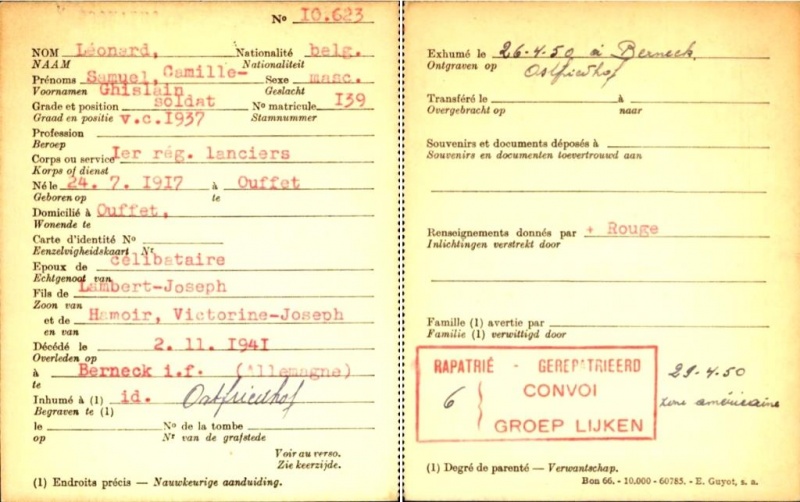 Nº 10.623
NOM Léonard, Nationalité belg.
NAAM Nationaliteit
Prénoms Samuel, Camille- Sexe masc.
Voornamen Ghislain Geslacht
Grade et position soldat Nº matricule 139
Graad en positie v.c.1937 Stamnummer
Profession
Beroep
Corps ou service Ier rég. lanciers
Korps of dienst
Né le 24. 7. 1917 à Ouffet
Geboren op te
Domicilié à Ouffet,
Wonende te
Carte d'identité Nº
Eenzelvigheidskaart Nr.
Epoux de célibataire
Echtgenoot van
Fils de Lambert-Joseph
Zoon van
et de Hamoir, Victorine-Joseph
en van
Décédé le 2. 11. 1941
Overleden op
à Berneck i.f. (Allemagne)
te
Inhumé à (1) id. Ostfriedhof
Begraven te (1)
le Nº de la tombe
op Nr van de grafstede
Voir au verso.
Zie keerzijde.
(1) Endroits précis — Nauwkeurige aanduiding.
Exhumé le 26-4-50 à Berneck
Ontgraven op Ostfriedhof
Transféré le à
Overgebracht op naar
Souvenirs et documents déposés à
Souvenirs en documenten toevertrouwd aan
Renseignements donnés par + Rouge
Inlichtingen verstrekt door
Famille (1) avertie par
Familie (1) verwittigd door
RAPATRIÉ - GEREPATRIEERD
6 CONVOI
GROEP LIJKEN
29-4-50
zone américaine
(1) Degré de parenté — Verwantschap.
Bon 66. - 10.000 - 60785. - E. Guyot, s. a.